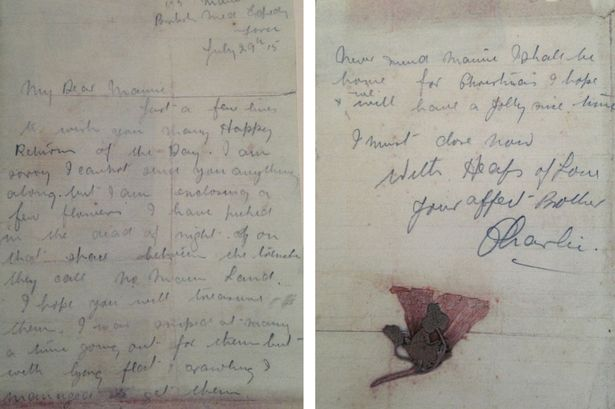 British Med Expedy
Force
July 29th 15
My Dear Mamie
Just a few lines
to wish you Many Happy
Return of the Day. I am
sorry I cannot send you anything
along. but I am enclosing a
few flowers I have picked
in the dead of night of on
that space between the trenches
they call No Mans Land.
I hope you will treasure
them. I was sniped at many
a time going out for them but
with lying flat & crawling I
managed to get them
Never mind Mamie I shall be
home for Christmas I hope
& we will have a jolly nice time
I must close now
With Heaps of Love
Your affect Brother
Charlie.